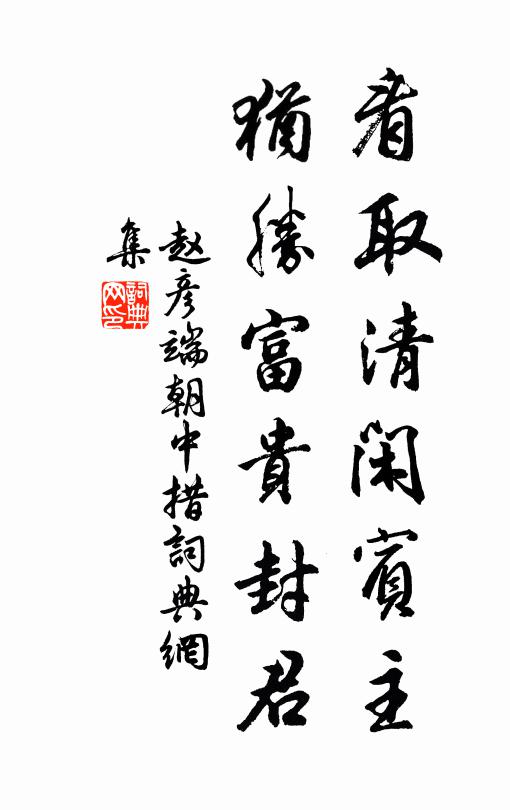 看取清閑賓主
猶勝富貴封君
赵彦端朝中措詞典網
集
詞典
网印